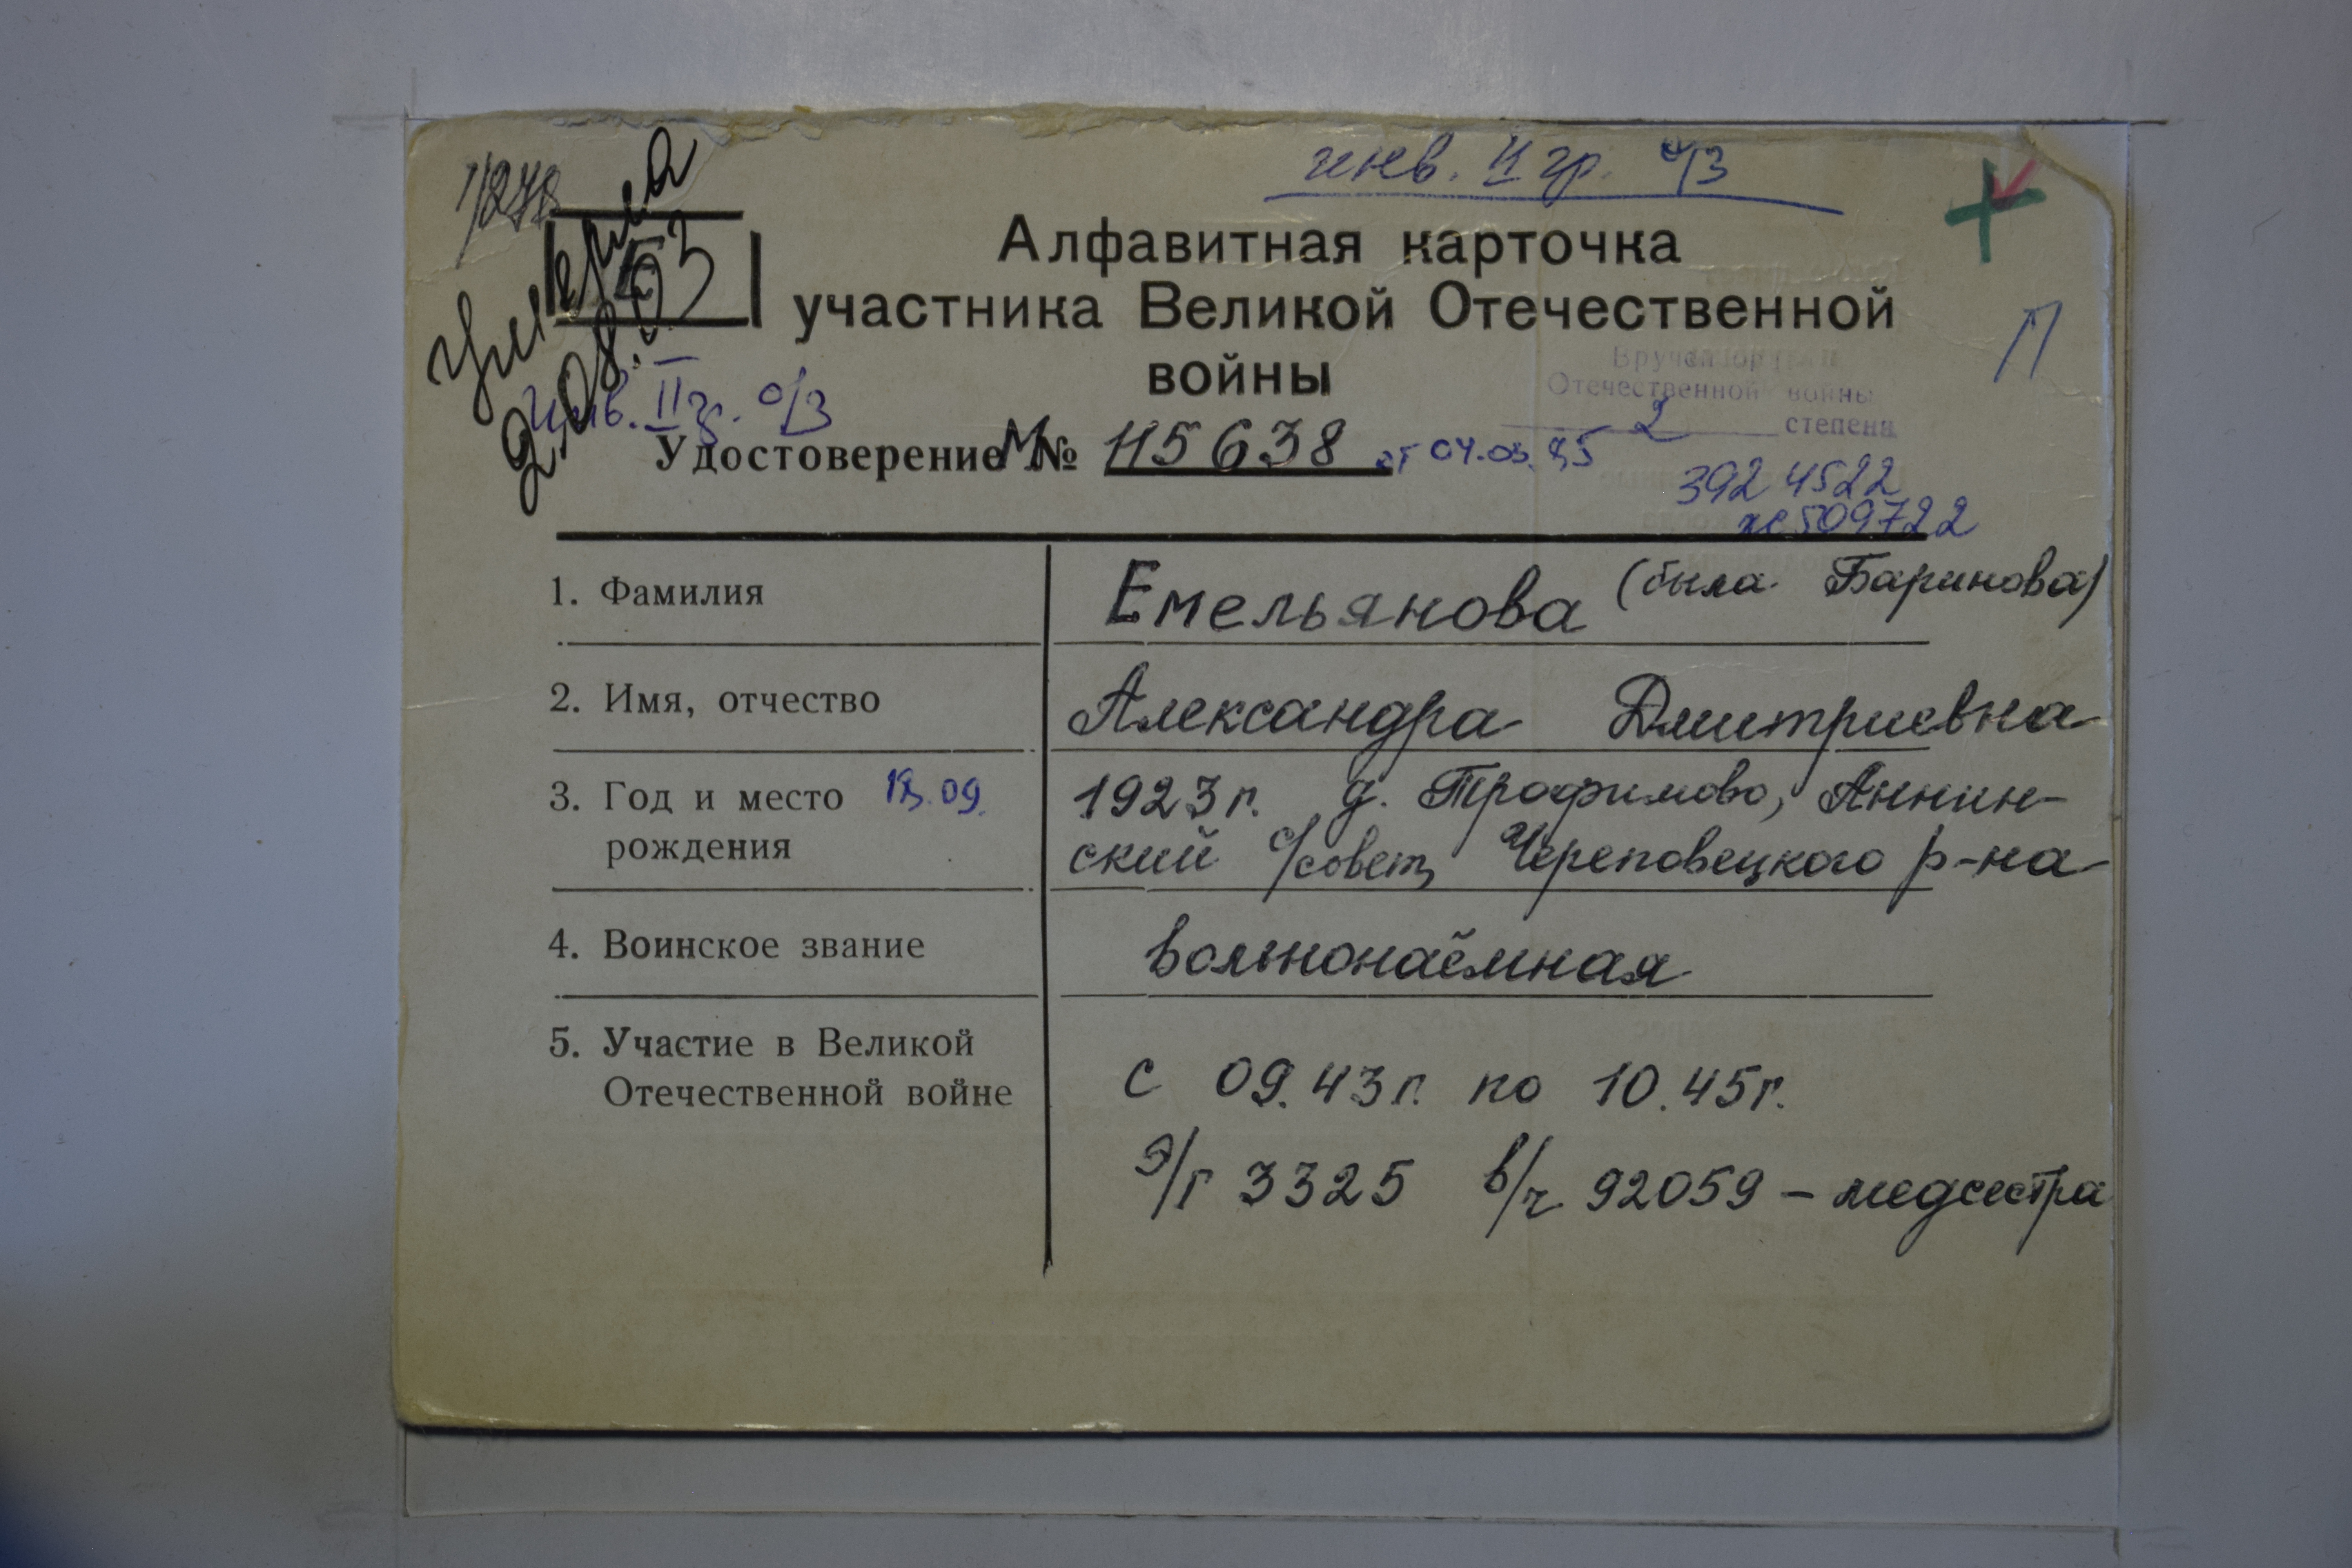 инв. II гр. о/з
Алфавитная карточка
участника Великой Отечественной
войны
П
умерла
2.08.03
инв. II г. о/з
Отечественной войны
2 степени
Удостоверение М № 115638 от 04.03.85
3924522
ж 509722
1. Фамилия Емельянова (была Баринова)
2. Имя, отчество Александра Дмитриевна
3. Год и место 09. 1923 г. д. Трофимово, Аннин-
рождения ский с/совет, Череповецкого р-на
4. Воинское звание вольнонаёмная
5. Участие в Великой
Отечественной войне с 09.43г. по 10.45г.
э/г 3325 в/ч 92059 – медсестра